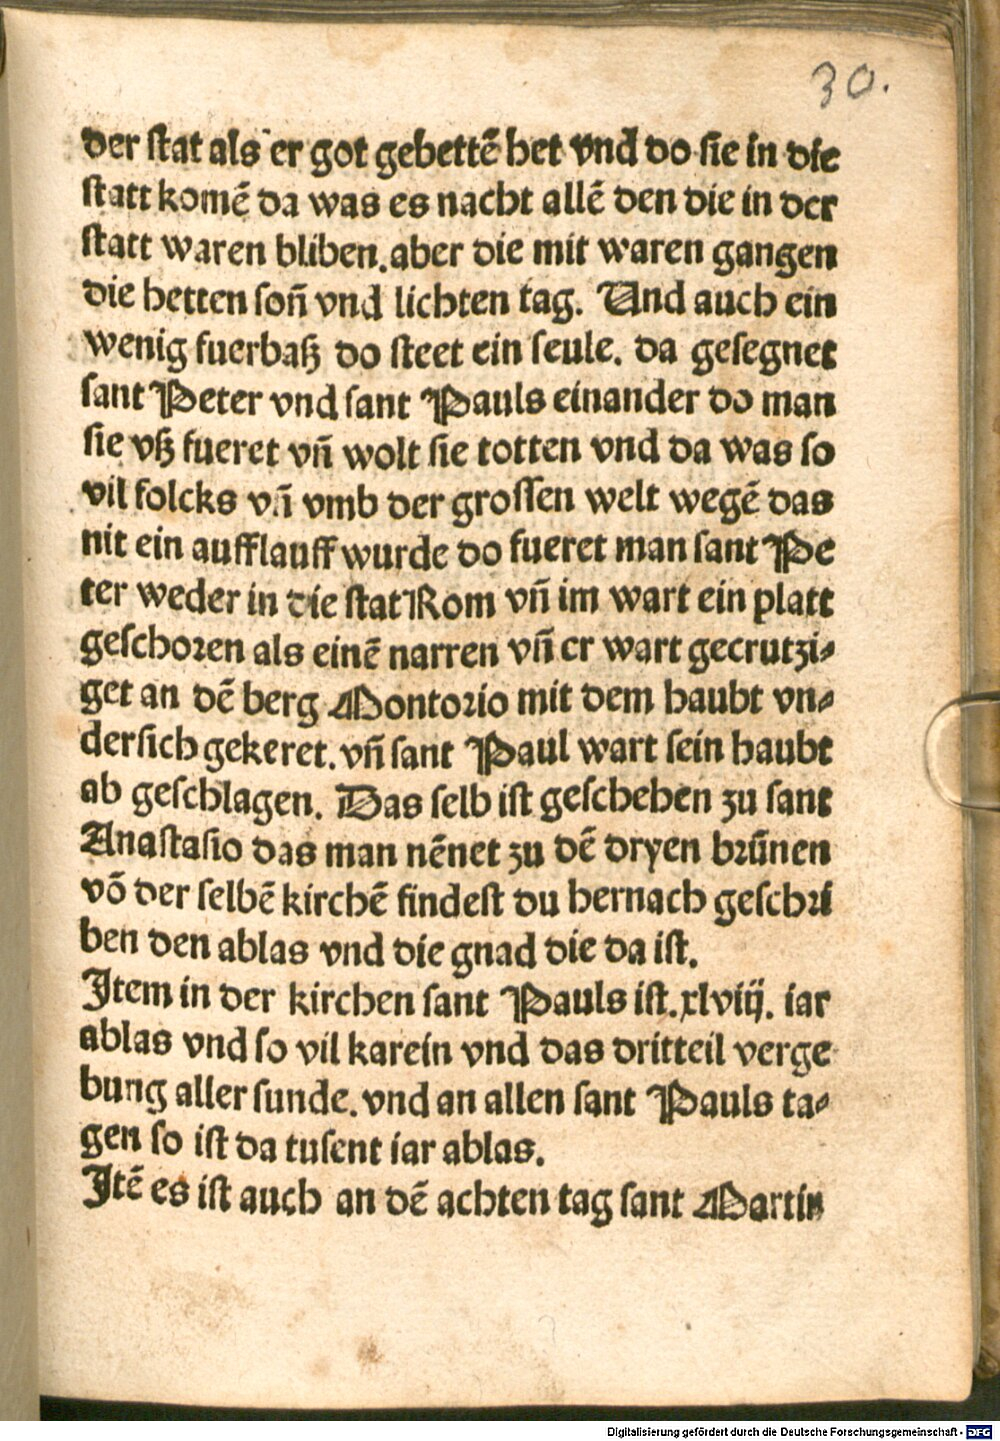 30.
der stat als er got gebettē het vnd do sie in die
statt komē da was es nacht allē den die in der
statt waren bliben. aber die mit waren gangen
die hetten soñ vnd lichten tag. Und auch ein
wenig fuerbaß do steet ein seule. da gesegnet
sant Peter vnd sant Pauls einander do man
sie vß fueret vñ wolt sie totten vnd da was so
vil folcks vñ vmb der grossen welt wegē das
nit ein aufflauff wurde do fueret man sant Pe
ter weder in die stat Rom vñ im wart ein platt
geschoren als einē narren vñ er wart gecrutzi⸗
get an dē berg Montorio mit dem haubt vn⸗
dersich gekeret. vñ sant Paul wart sein haubt
ab geschlagen. Das selb ist geschehen zu sant
Anastasio das man nēnet zu dē dryen brūnen
vō der selbē kirchē findest du hernach geschri
ben den ablas vnd die gnad die da ist.
Item in der kirchen sant Pauls ist. xlviij. iar
ablas vnd so vil karein vnd das dritteil verge
bung aller sunde. vnd an allen sant Pauls ta⸗
gen so ist da tusent iar ablas.
Itē es ist auch an dē achten tag sant Martin
Digitalisierung gefördert durch die Deutsche Forschungsgemeinschaft - DFG